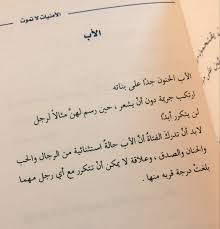 الأمنيات لا تموت
الأب
الأب الحنون جدًا على بناته
ارتكب جريمة دون أنْ يشعر ، حين رسم لهنّ مثالاً لرجل
لن يتكرر أبدًا
لابد أنْ تدركَ الفتاةُ أنّ الأب حالةٌ استثنائية من الرجال والحب
والحنان والصدق ، وعلاقة لا يمكن أنْ تتكرر مع أي رجل مهما
بلغتْ درجة قربه منها .